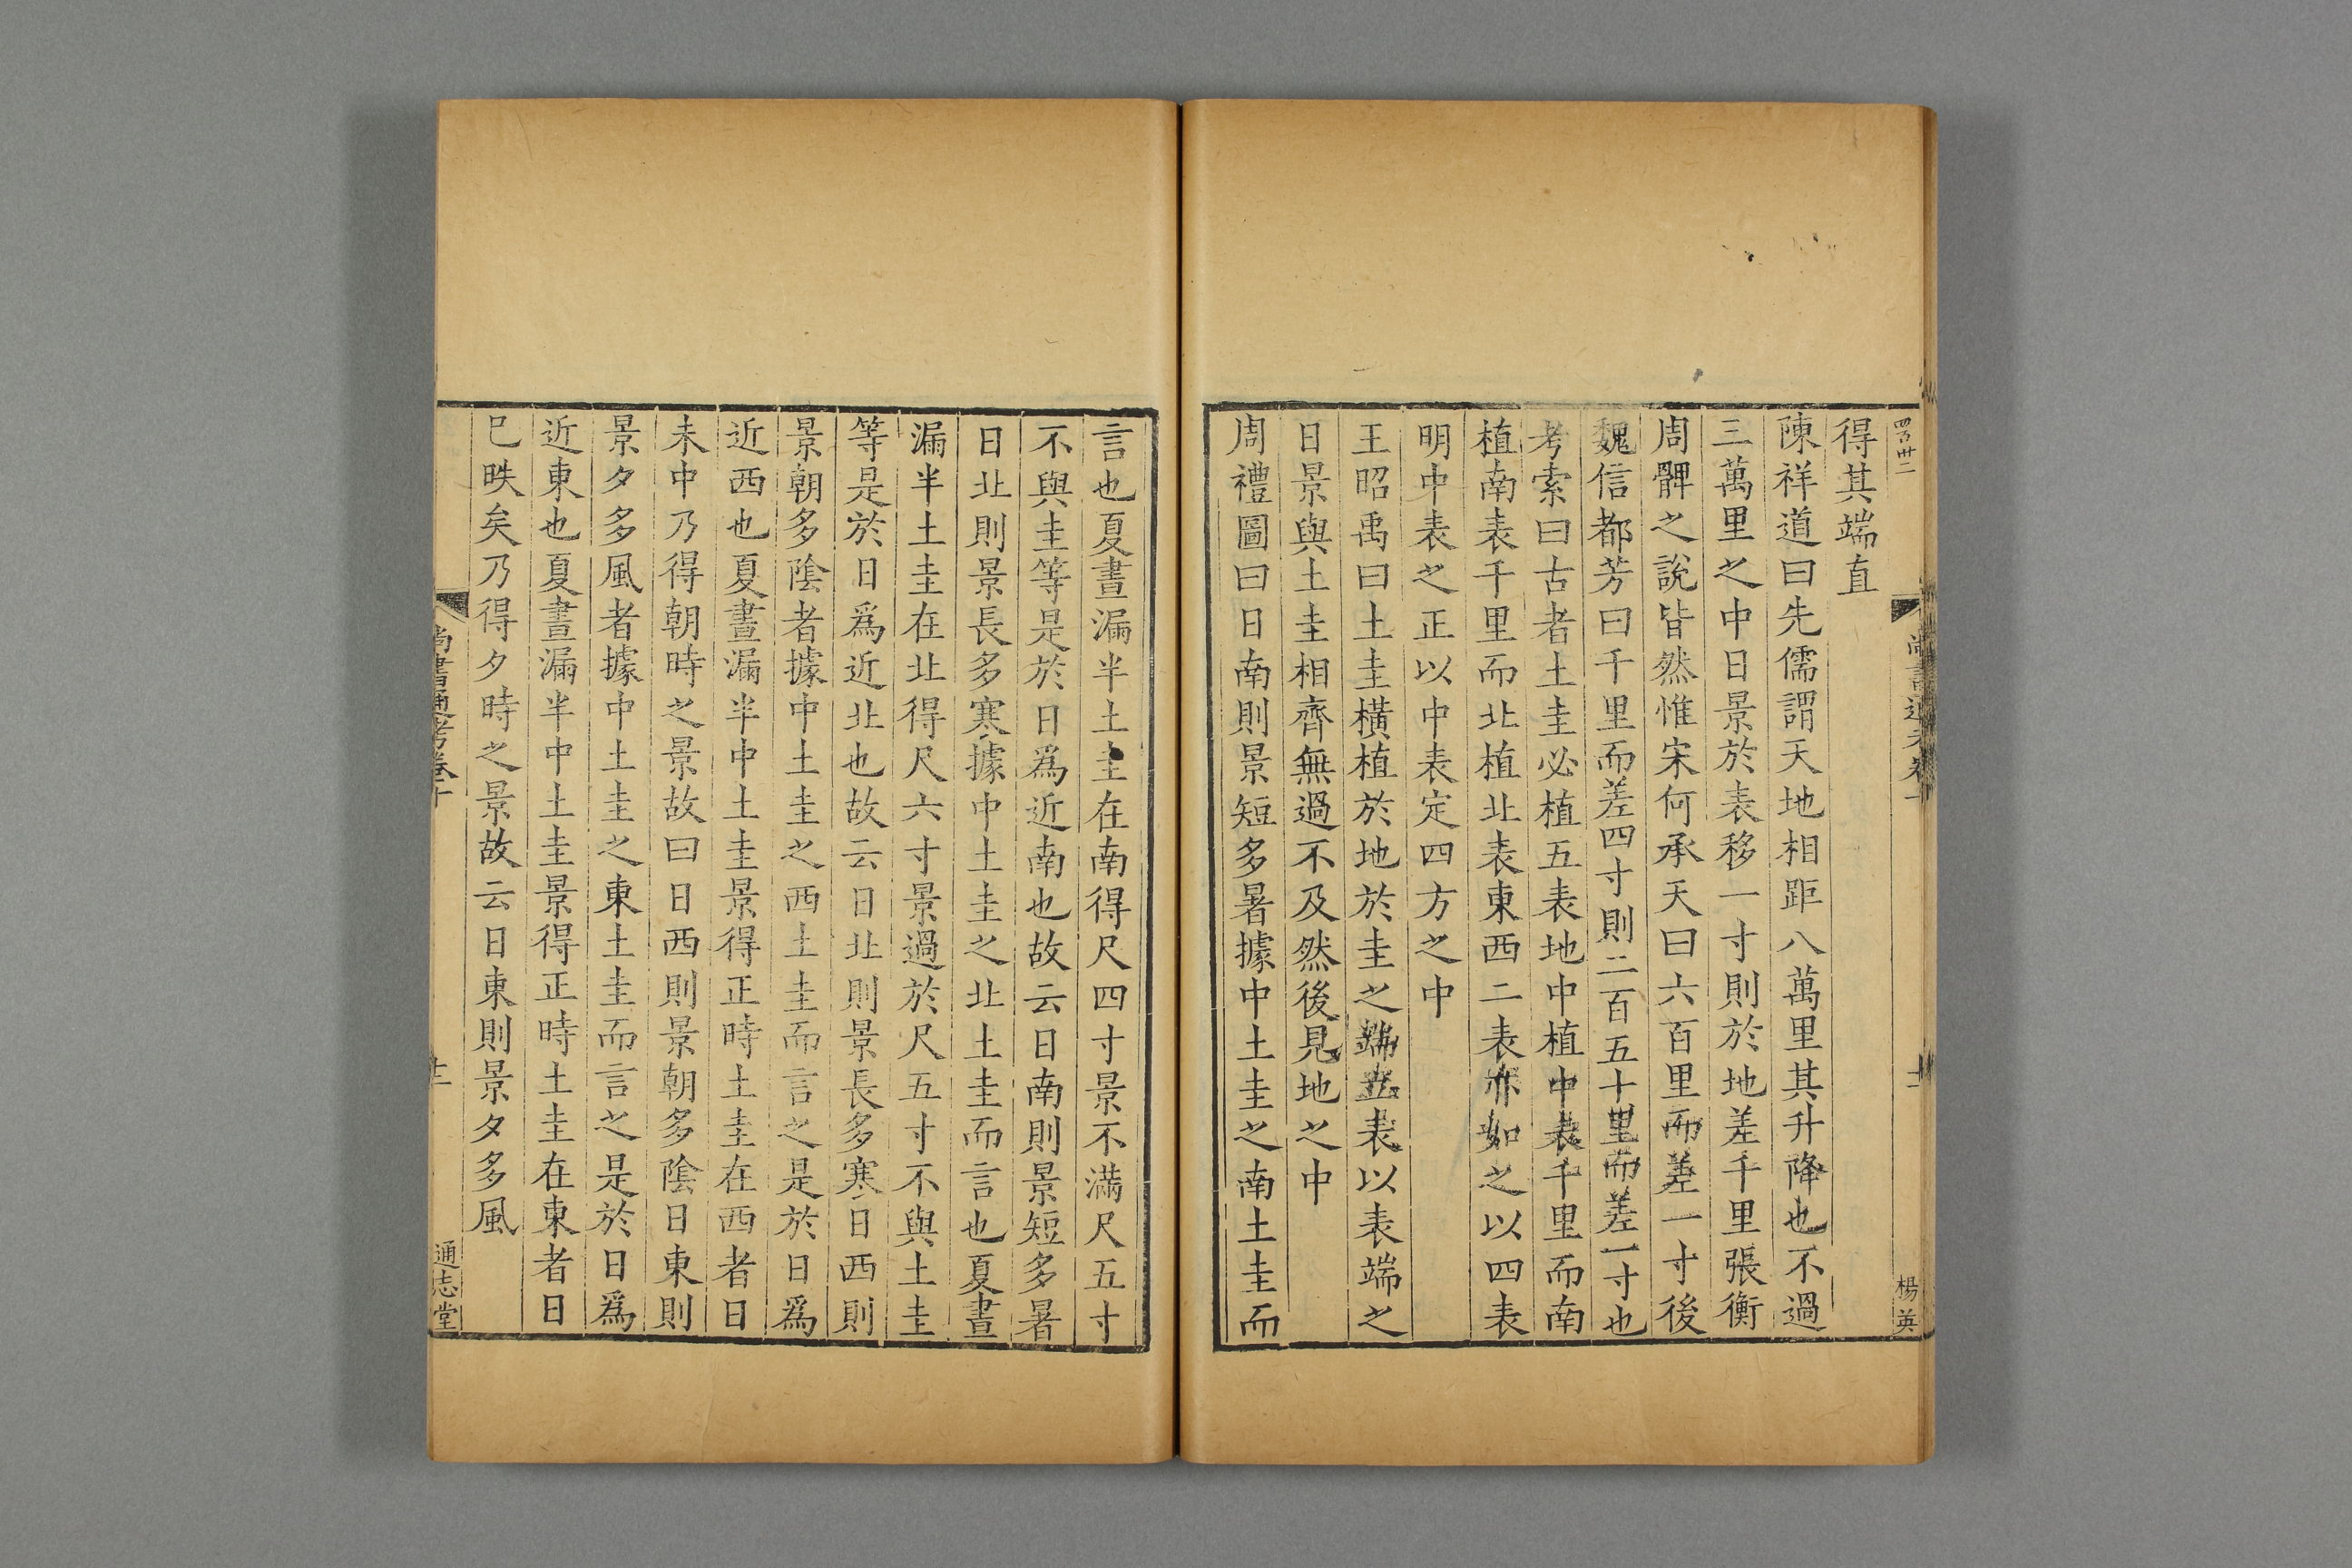 四百卅二
尚書通考卷十
十一
楊英
得其端直
陳祥道曰先儒謂天地相距八萬里其升降也不過
三萬里之中日景於表移一寸則於地差千里張衡
周髀之說皆然惟宋何承天曰六百里而差一寸後
魏信都芳曰千里而差四寸則二百五十里而差一寸也
考索曰古者土圭必植五表地中植中表千里而南
植南表千里而北植北表東西二表亦如之以四表
明中表之正以中表定四方之中
王昭禹曰土圭橫植於地於圭之端立表以表端之
日景與土圭相齊無過不及然後見地之中
周禮圖曰日南則景短多暑據中土圭之南土圭而
言也夏晝漏半土圭在南得尺四寸景不滿尺五寸
不與圭等是於日爲近南也故云日南則景短多暑
日北則景長多寒據中土圭之北土圭而言也夏晝
漏半土圭在北得尺六寸景過於尺五寸不與土圭
等是於日爲近北也故云日北則景長多寒日西則
景朝多陰者據中土圭之西土圭而言之是於日爲
近西也夏晝漏半中土圭景得正時土圭在西者日
未中乃得朝時之景故曰日西則景朝多陰日東則
景夕多風者據中土圭之東土圭而言之是於日爲
近東也夏晝漏半中土圭景得正時土圭在東者日
已昳矣乃得夕時之景故云日東則景夕多風
尚書通考卷十
十二
通志堂